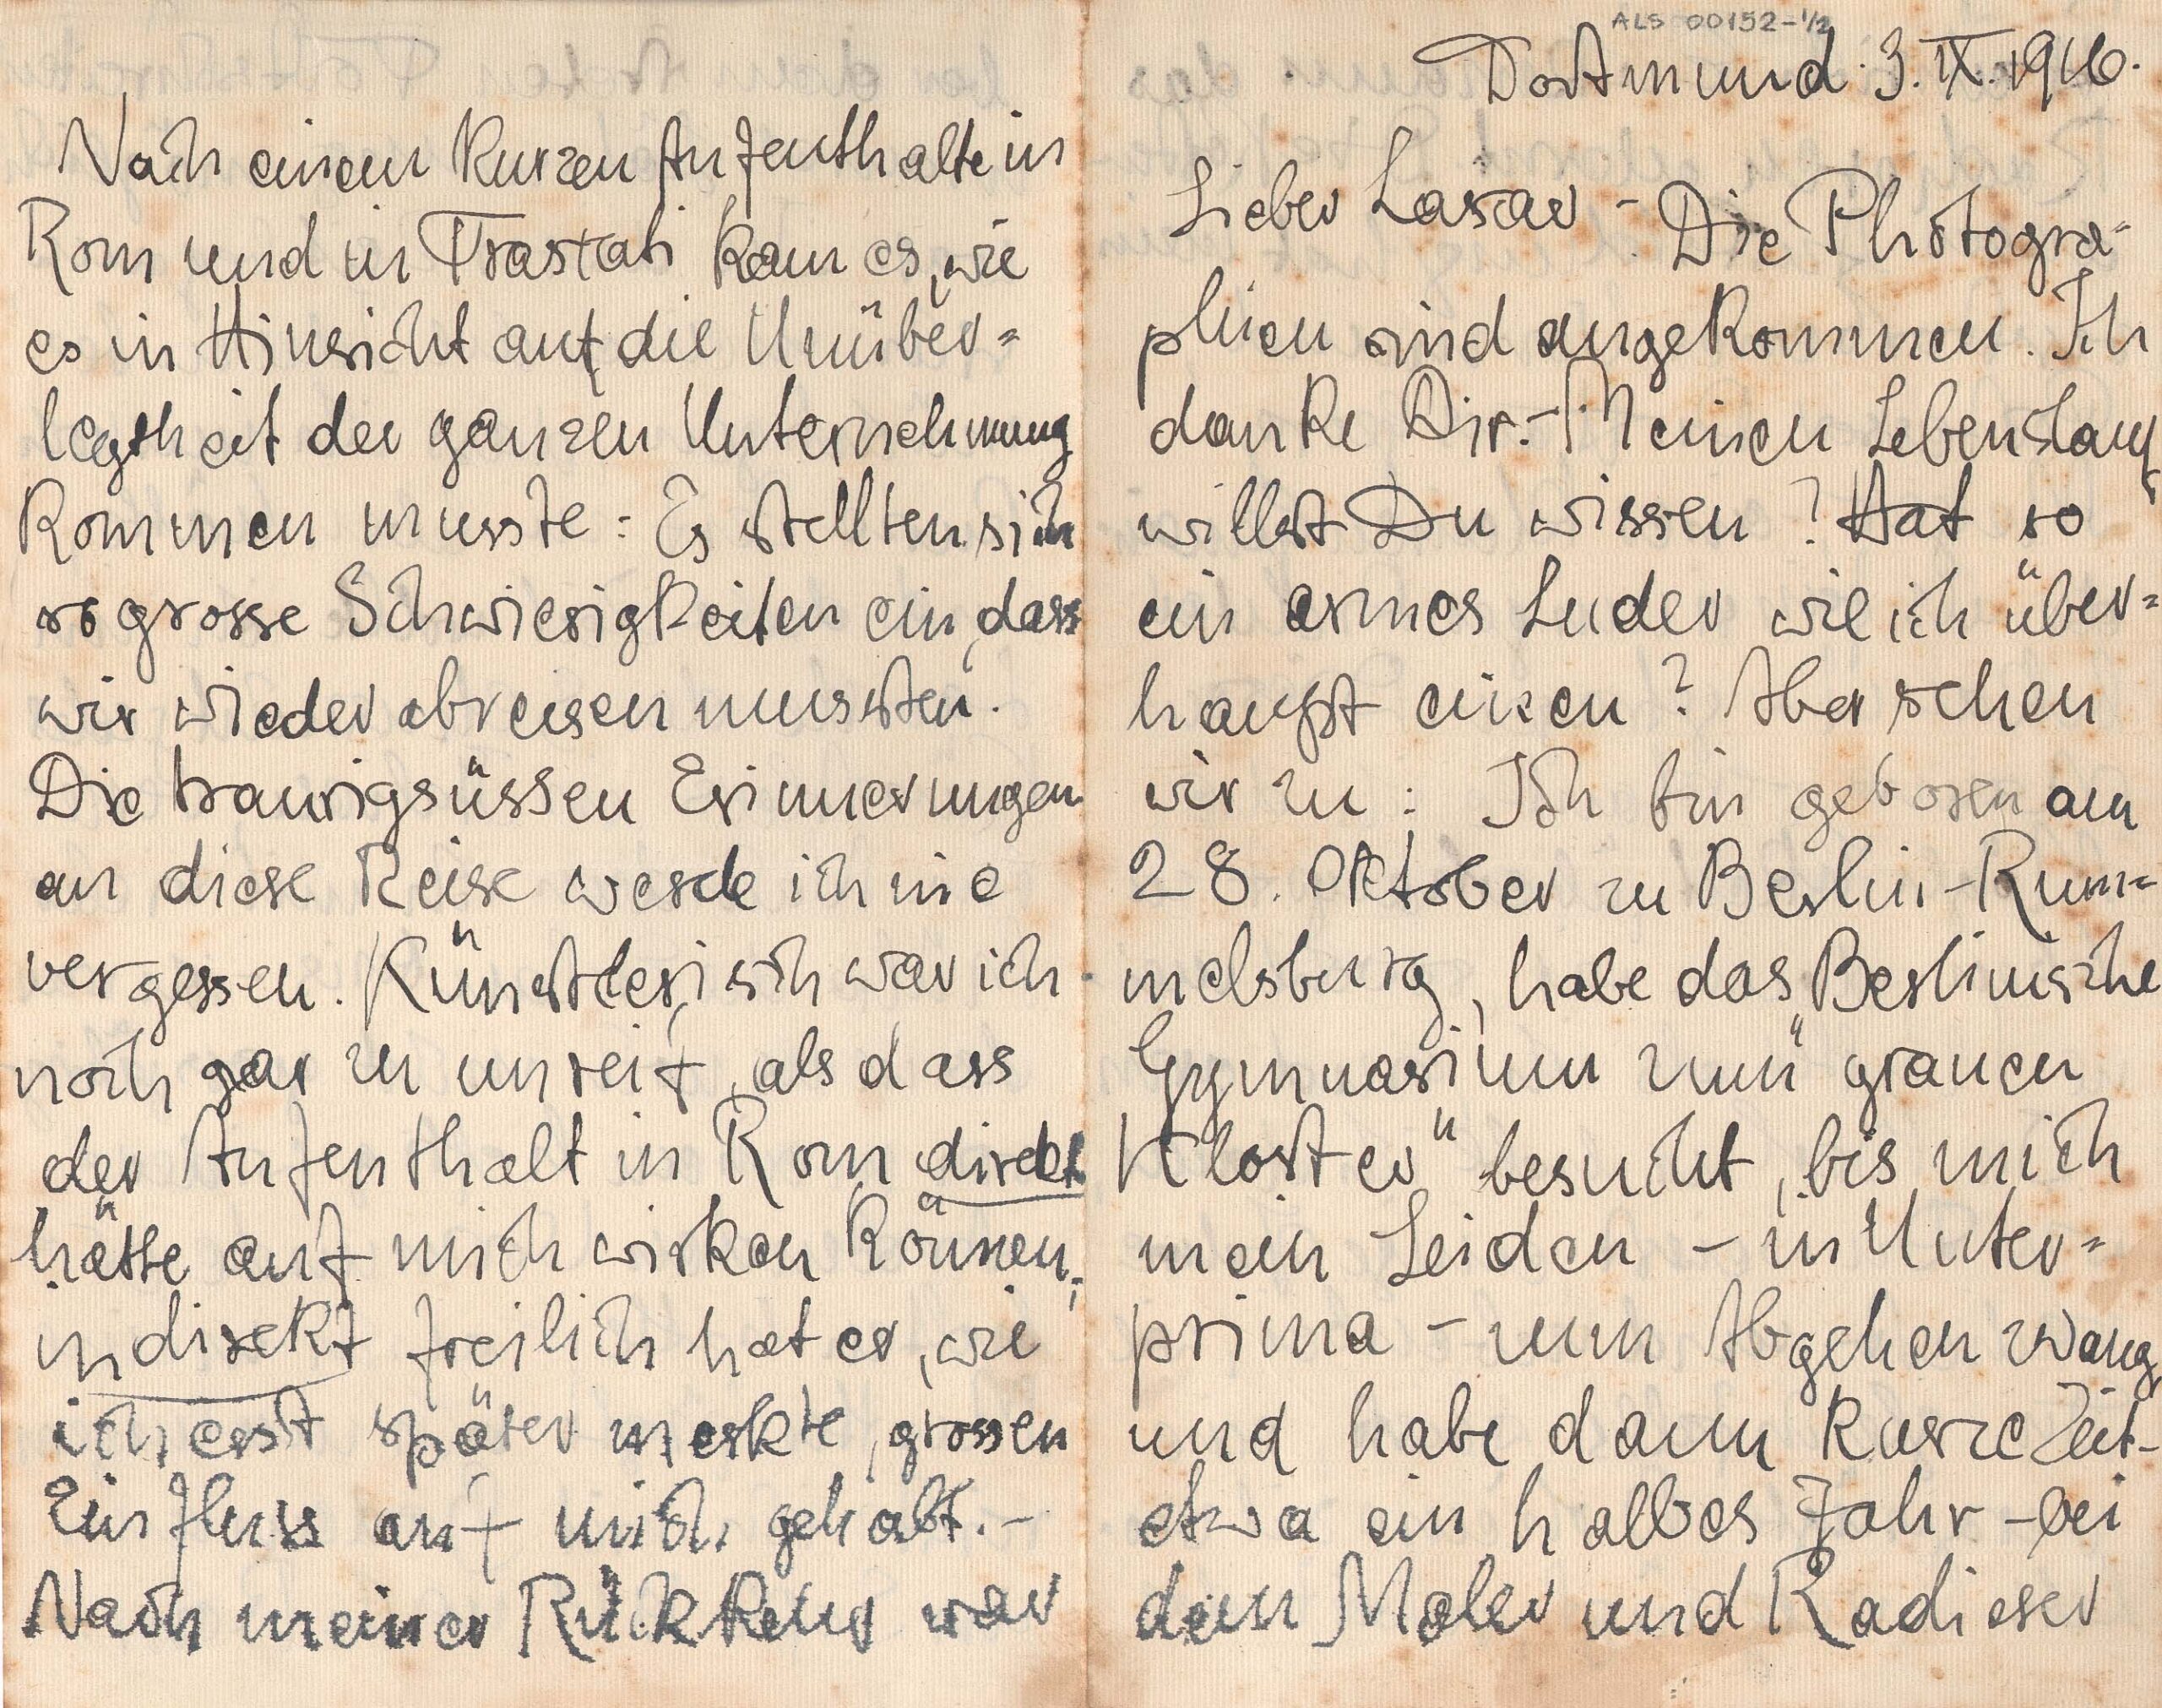 ALS 00152-1/2
Dortmund. 3. IX. 1916.
Lieber Lasar – Die Photogra-
phien sind angekommen. Ich
danke Dir. – Meinen Lebenslauf
willst Du wissen? Hat so
ein armes Luder wie ich über=
haupt einen? Aber sehen
wir zu: Ich bin geboren am
28. Oktober zu Berlin-Rum=
melsburg, habe das Berlinische
Gymnasium zum "grauen
Kloster" besucht, bis mich
mein Leiden – in Unter=
prima – zum Abgehen zwang
und habe dann kurze Zeit –
etwa ein halbes Jahr – bei
dem Maler und Radierer
Nach einem kurzen Aufenthalte in
Rom und in Frascati kam es, wie
es in Hinsicht auf die Unüber=
legtheit der ganzen Unternehmung
kommen musste: Es stellten sich
so grosse Schwierigkeiten ein, dass
wir wieder abreisen mussten.
Die traurigsüssen Erinnerungen
an diese Reise werde ich nie
vergessen. Künstlerisch war ich
noch gar zu unreif, als dass
der Aufenthalt in Rom direkt
hätte auf mich wirken können;
indirekt freilich hat er, wie
ich erst später merkte, grossen
Einfluss auf mich gehabt. –
Nach meiner Rückkehr war